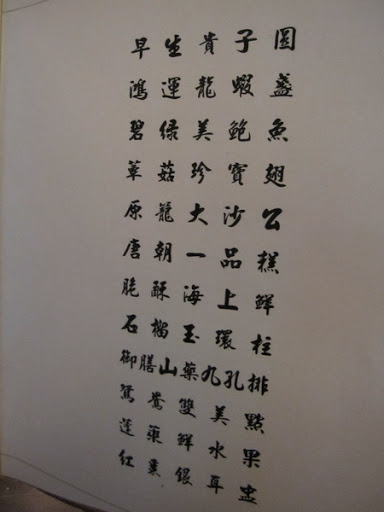 早生貴子圓
鴻運龍蝦盞
碧綠美鮑魚
草菇珍寶翅
原籠大沙公
唐朝一品糕
脆酥海上鮮
石榴玉環柱
御膳山藥九孔排
鴛鴦雙美點
蓬萊鮮水果
紅棗銀耳盅